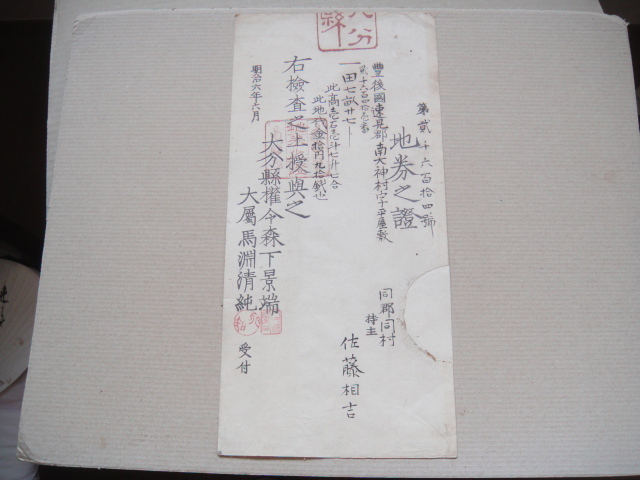 第貳十六百拾四號
地券之證
豐後國速見郡南大神村字平屋敷
一田七畝廿七
此高壱石壱斗七升七合
此地代金拾円九拾銭也
同郡同村
持主
佐藤相吉
右檢査之上授與之
明治六年六月
大分縣權令森下景端
大屬馬淵清純
受付
大分